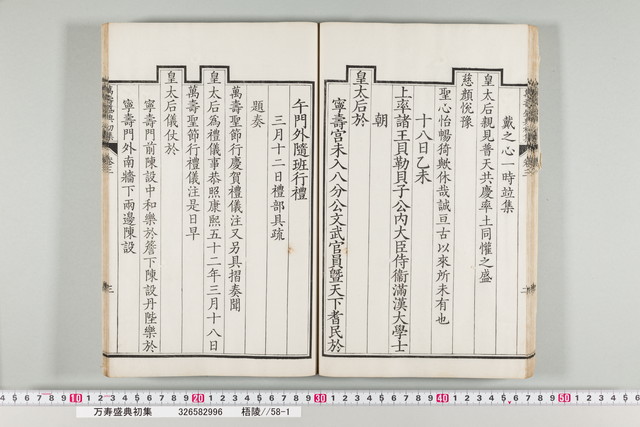 戴之心一時竝集
皇太后親見普天共慶率土同懽之盛
慈顏悅豫
聖心怡暢猗歟休哉誠亘古以來所未有也
十八日乙未
上率諸王貝勒貝子公內大臣侍衞滿漢大學士
朝
皇太后於
寧壽宮未入八分公文武官員暨天下耆民於
午門外隨班行禮
三月十二日禮部具疏
題奏
萬壽聖節行慶賀禮儀注又另具摺奏聞
皇太后爲禮儀事恭照康熙五十二年三月十八日
萬壽聖節行禮儀注是日早
皇太后儀仗於
寧壽門前陳設中和樂於簷下陳設丹陛樂於
寧壽門外南牆下兩邊陳設
萬壽盛典初集
卷三
三
10 20 30 40 50
万寿盛典初集 326582996 梧陵//58-1